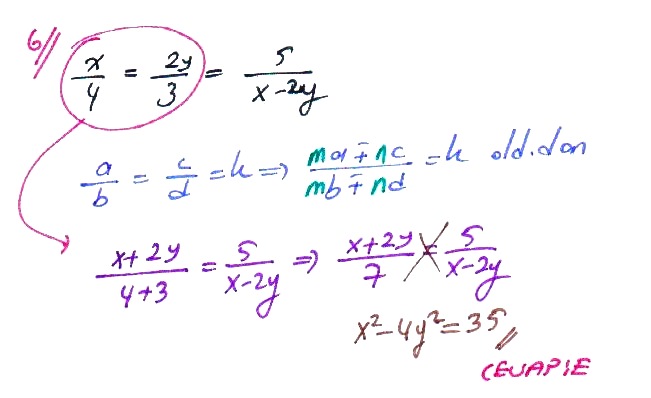 6//
x/4 = 2y/3 = 5/(x-2y)
a/b = c/d = k => (ma ∓ nc)/(mb ∓ nd) = k old.dan
(x+2y)/(4+3) = 5/(x-2y) => (x+2y)/7 = 5/(x-2y)
x²-4y²=35//
CEVAP:E